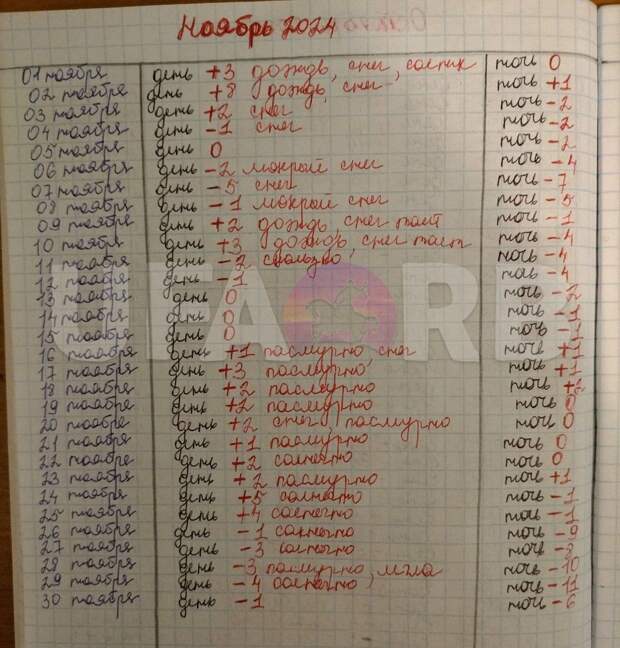 Ноябрь 2024
01 ноября день +3 дождь, снег, солнце ночь 0
02 ноября день +8 дождь, снег ночь +1
03 ноября день +2 снег ночь -2
04 ноября день -1 снег ночь -2
05 ноября день 0 ночь -2
06 ноября день -2 мокрый снег ночь -4
07 ноября день -5 снег ночь -7
08 ноября день -1 мокрый снег ночь -5
09 ноября день +2 дождь, снег тает ночь -1
10 ноября день +3 дождь, снег тает ночь -4
11 ноября день -2 скользко, ночь -4
12 ноября день -1 ночь -4
13 ноября день 0 ночь -2
14 ноября день 0 ночь -1
15 ноября день 0 ночь -1
16 ноября день +1 пасмурно, снег ночь +1
17 ноября день +3 пасмурно ночь +1
18 ноября день +2 пасмурно ночь +2
19 ноября день +2 пасмурно ночь 0
20 ноября день +2 снег, пасмурно ночь 0
21 ноября день +1 пасмурно ночь 0
22 ноября день +2 солнечно ночь 0
23 ноября день +2 пасмурно ночь +1
24 ноября день +5 солнечно ночь -1
25 ноября день +4 солнечно ночь -1
26 ноября день -1 солнечно ночь -9
27 ноября день -3 солнечно ночь -8
28 ноября день -3 пасмурно, мгла ночь -10
29 ноября день -4 солнечно ночь -11
30 ноября день -1 ночь -6